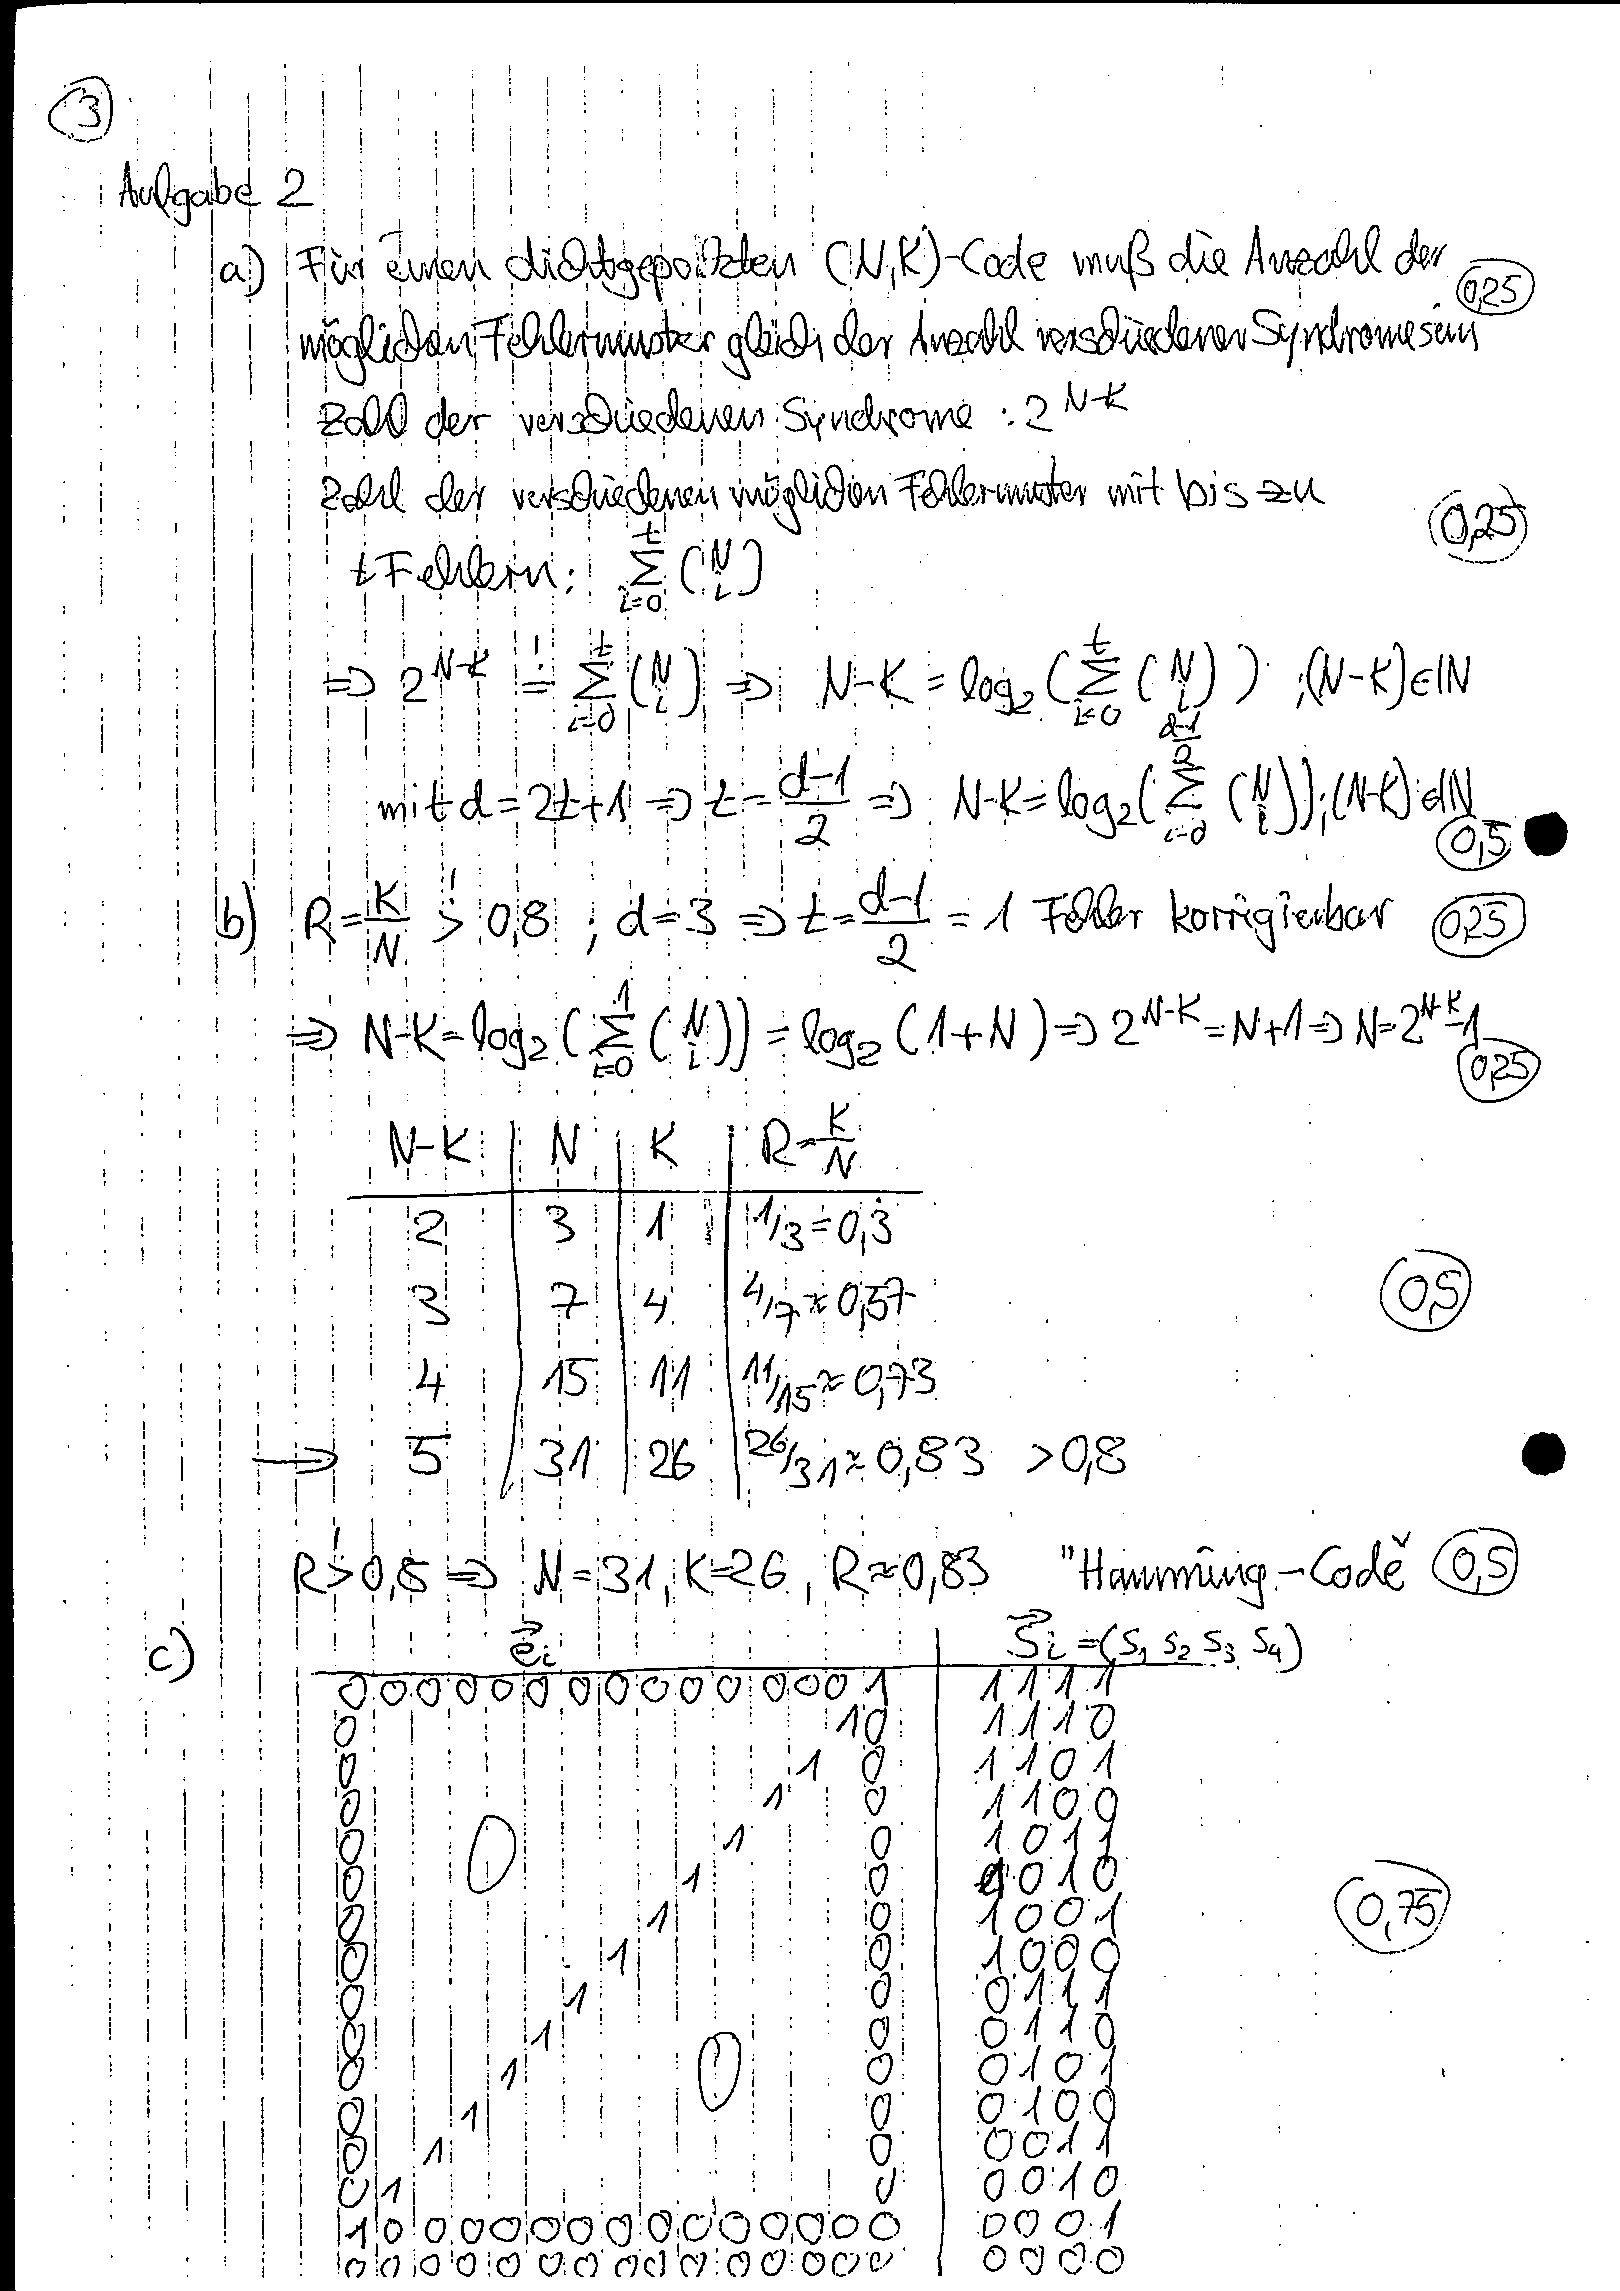 3
Aufgabe 2
a) Für einen dichtgepackten (N,K)-Code muß die Anzahl der 0,25
möglichen Fehlermuster gleich der Anzahl verschiedener Syndrome sein
Zahl der verschiedenen Syndrome : 2^{N-K}
Zahl der verschiedenen möglichen Fehlermuster mit bis zu 0,25
t Fehlern: \sum_{i=0}^{t} \binom{N}{i}
⇒ 2^{N-K} \stackrel{!}{=} \sum_{i=0}^{t} \binom{N}{i} ⇒ N-K = log_2 ( \sum_{i=0}^{t} \binom{N}{i} ) ; (N-K) ∈ IN
mit d=2t+1 ⇒ t = \frac{d-1}{2} ⇒ N-K = log_2 ( \sum_{i=0}^{\frac{d-1}{2}} \binom{N}{i} ) ; (N-K) ∈ IN 0,5
b) R = \frac{K}{N} \stackrel{!}{>} 0,8 ; d=3 ⇒ t = \frac{d-1}{2} = 1 Fehler korrigierbar 0,25
⇒ N-K = log_2 ( \sum_{i=0}^{1} \binom{N}{i} ) = log_2 (1+N) ⇒ 2^{N-K} = N+1 ⇒ N = 2^{N-K}-1 0,25
N-K | N | K | R = \frac{K}{N}
2 | 3 | 1 | 1/3 = 0,\dot{3}
3 | 7 | 4 | 4/7 ≈ 0,57 0,5
4 | 15 | 11 | 11/15 ≈ 0,73
→ 5 | 31 | 26 | 26/31 ≈ 0,83 > 0,8
R \stackrel{!}{>} 0,8 ⇒ N = 31, K=26, R ≈ 0,83 "Hamming-Code" 0,5
c) \vec{e}_i | \vec{s}_i = (s_1 s_2 s_3 s_4)
0 0 0 0 0 0 0 0 0 0 0 0 0 0 1 | 1 1 1 1
0 1 0 | 1 1 1 0
0 1 0 | 1 1 0 1
0 1 0 | 1 1 0 0
0 0 1 0 | 1 0 1 1
0 1 0 | 1 0 1 0
0 1 0 | 1 0 0 1 0,75
0 1 0 | 1 0 0 0
0 1 0 | 0 1 1 1
0 1 0 | 0 1 1 0
0 1 0 0 | 0 1 0 1
0 1 0 | 0 1 0 0
0 1 0 | 0 0 1 1
0 1 0 | 0 0 1 0
1 0 0 0 0 0 0 0 0 0 0 0 0 0 0 | 0 0 0 1
0 0 0 0 0 0 0 0 0 0 0 0 0 0 0 | 0 0 0 0